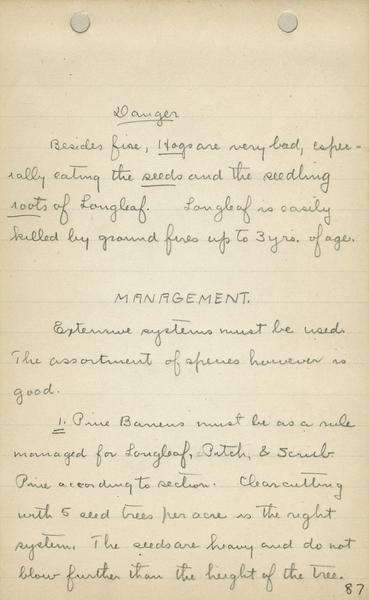 Danger
Besides fire, Hogs are very bad, espec-
ially eating the seeds and the seedling
roots of Longleaf. Longleaf is easily
killed by ground fires up to 3 yrs. of age.
MANAGEMENT.
Extensive systems must be used.
The assortment of species however is
good.
1. Pine Barrens must be as a rule
managed for Longleaf, Pitch, & Scrub
Pine according to section. Clearcutting
with 5 seed trees per acre is the right
system. The seeds are heavy and do not
blow further than the height of the tree.
87